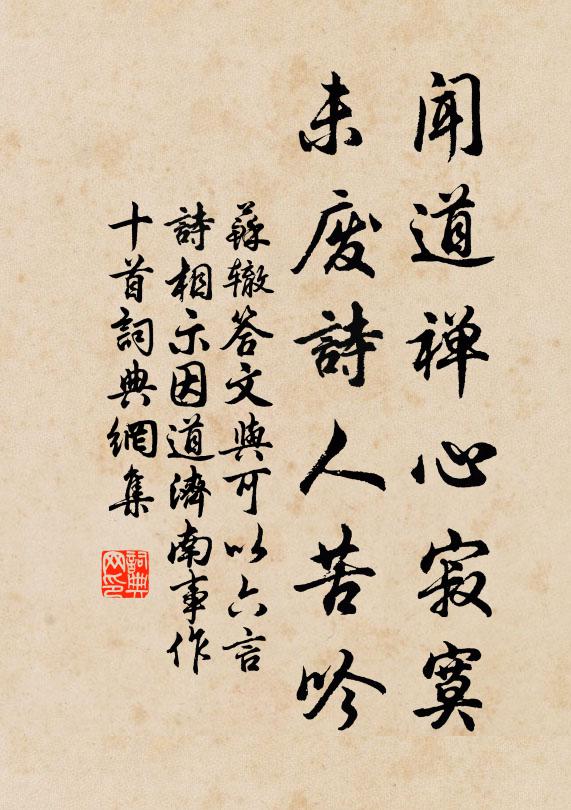 闻道禅心寂寞
未废詩人苦吟
蘇辙答文與可以六言
詩相示因道濟南事作
十首詞典網集
詞典网印